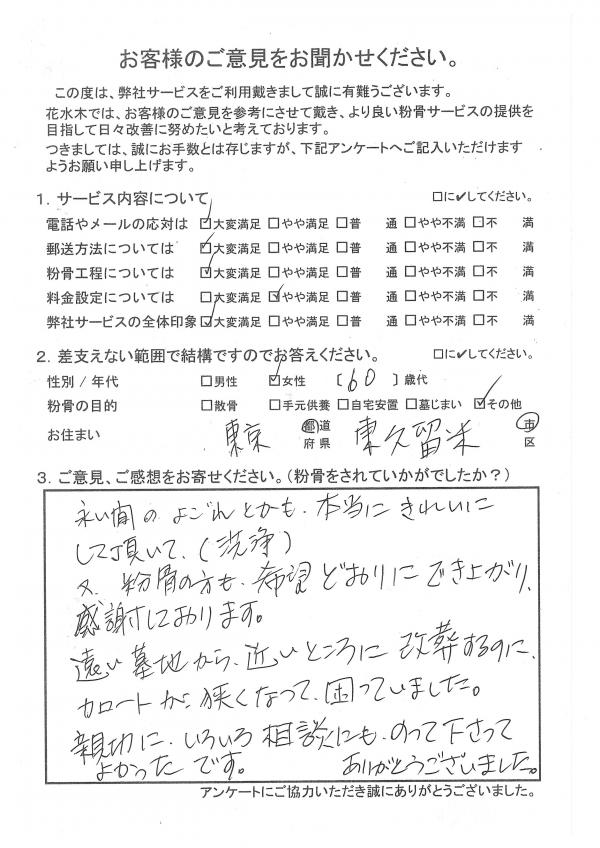 お客様のご意見をお聞かせください。
この度は、弊社サービスをご利用戴きまして誠に有難うございます。
花水木では、お客様のご意見を参考にさせて戴き、より良い粉骨サービスの提供を
目指して日々改善に努めたいと考えております。
つきましては、誠にお手数とは存じますが、下記アンケートへご記入いただけます
ようお願い申し上げます。
1．サービス内容について □に✓してください。
電話やメールの応対は ☑大変満足 □やや満足 □普 通 □やや不満 □不 満
郵送方法については ☑大変満足 □やや満足 □普 通 □やや不満 □不 満
粉骨工程については ☑大変満足 □やや満足 □普 通 □やや不満 □不 満
料金設定については □大変満足 ☑やや満足 □普 通 □やや不満 □不 満
弊社サービスの全体印象 ☑大変満足 □やや満足 □普 通 □やや不満 □不 満
2．差支えない範囲で結構ですのでお答えください。 □に✓してください。
性別 / 年代 □男性 ☑女性 〔 60 〕歳代
粉骨の目的 □散骨 □手元供養 □自宅安置 □墓じまい ☑その他
お住まい 東京 都道府県 東久留米 市区
3．ご意見、ご感想をお寄せください。（粉骨をされていかがでしたか？）
永い間のよごれとかも、本当にきれいに
して頂いて、（洗浄）
又、粉骨の方も、希望どおりにでき上がり、
感謝しております。
遠い墓地から、近いところに改葬するのに、
カロートが狭くなって、困っていました。
親切に、いろいろ相談にも、のって下さって
よかったです。 ありがとうございました。
アンケートにご協力いただき誠にありがとうございました。